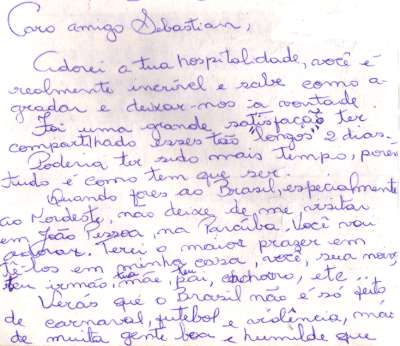 Caro amigo Sebastian,
Adorei a tua hospitalidade, você é
realmente incrível e sabe como a-
gradar e deixar-nos à vontade.
Foi uma grande satisfação ter
compartilhado esses tão "longos" 2 dias.
Poderia ter sido mais tempo, porém
tudo é como tem que ser.
Quando fores ao Brasil, especialmente
ao Nordeste, não deixe de me visitar
em João Pessoa, na Paraíba. Você vai
adorar. Terei o maior prazer em
tê-los em minha casa, você, sua
teu irmão, tua mãe, teu pai, cachorro, etc...
Verás que o Brasil não é só feito
de carnaval, futebol e violência, mas
de muita gente boa e humilde que